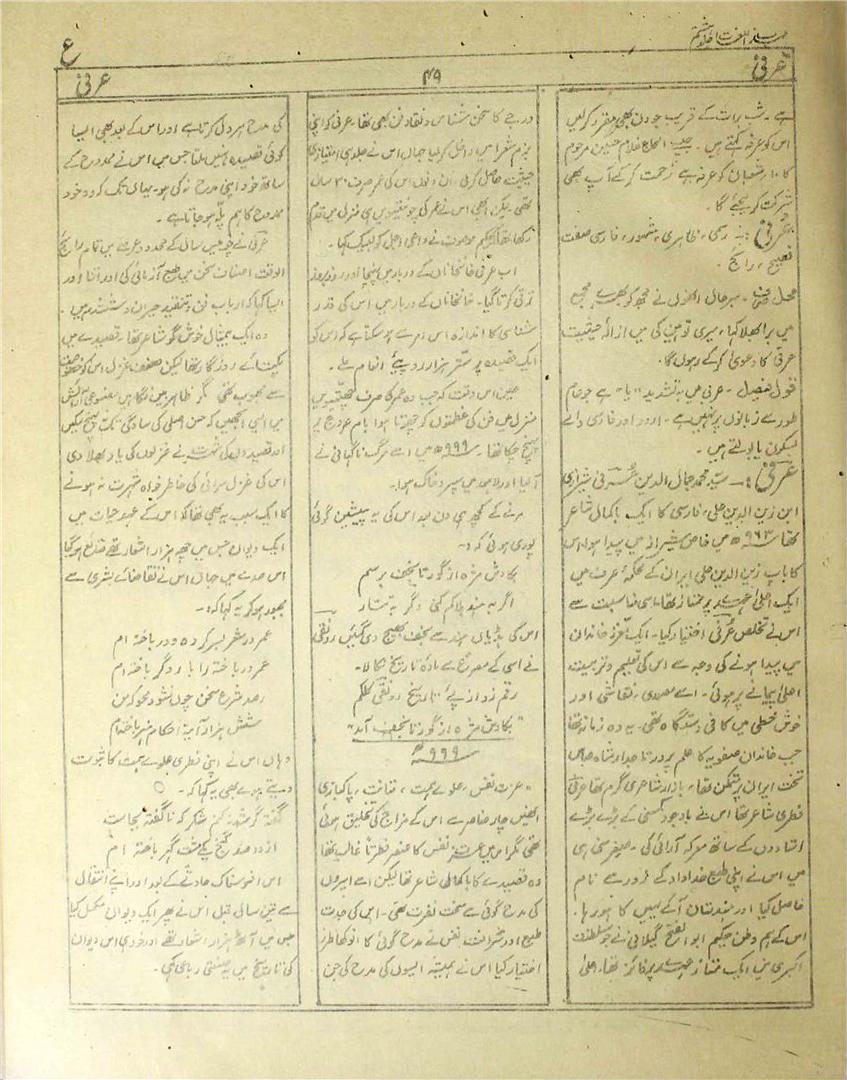 مہذب اللغات جلد ہشتم
ع
عرفی
۴۹
عرفی
ہے ۔ شب برات کے قریب جو دن بھی مقرر کرلیں
اس کو عرفہ کہتے ہیں ۔ الحاج غلام حسین مرحوم
کا ۱۰ شعبان کو عرفہ ہے زحمت کرکے آپ بھی
شرکت کریجئے گا ۔
عُرفی :۔ رسمی، ظاہری، مشہور، فارسی صفت
فصیح ، رائج ۔
محل صرف ۔ سرِحال انہوں نے مجھ کو بھرے مجمع
میں برا بھلا کہا، میری توہین کی میں ازالۂ حیثیت
عرفی کا دعویٰ کرکے رہوں گا ۔
قول فیصل ۔ عربی میں بہ تشدید "یا" ہے جو عام
طور سے زبانوں پر نہیں ہے ۔ اردو اور فارسی والے
بسکون یا بولتے ہیں ۔
عُرفی :۔ سید محمد جمال الدین عرفی شیرازی
ابن زین الدین علی، فارسی کا ایک باکمال شاعر
تھا ۹۶۳ھ میں خاص شیراز میں پیدا ہوا، اس
کا باپ زین الدین علی ایران کے محکمۂ عرف میں
ایک اعلیٰ عہدے پر ممتاز تھا، اسی مناسبت سے
اس نے تخلص عُرفی اختیار کیا ۔ ایک معزز خاندان
میں پیدا ہونے کی وجہ سے اس کی تعلیم و تربیت
اعلیٰ پیمانے پر ہوئی ۔ اسے مصوری، نقاشی اور
خوش خطی میں کافی دستگاہ تھی ۔ یہ وہ زمانہ تھا
جب خاندان صفویہ کا علم پرور تاجدار شاہ عباس
تخت ایران پر متمکن تھا، بازار شاعری گرم تھا عرفی
فطری شاعر تھا اس نے باوجود کمسنی کے بڑے بڑے
استادوں کے ساتھ معرکہ آرائی کی ۔ صغر سنی ہی
میں اس نے اپنی طبع خداداد کے زور سے نام
حاصل کیا اور ہندستان آکے یہیں کا ہو رہا ۔
اس کے ہم وطن حکیم ابوالفتح گیلانی نے جو سلطنت
اکبری میں ایک ممتاز عہدے پر فائز تھا، اعلیٰ
درجے کا سخن شناس و نقاد فن بھی تھا، عرفی کو اپنی
بزم شعرا میں داخل کرلیا جہاں اس نے جلد ہی امتیازی
حیثیت حاصل کرلی، ان دنوں اس کی عمر صرف ۳۰ سال
تھی ۔ لیکن ابھی اس نے عمر کی چونتیسویں ہی منزل میں قدم
رکھا تھا کہ حکیم موصوف نے داعی اجل کو لبیک کہا ۔
اب عرفی خانخاناں کے دربار میں پہنچا اور روز بروز
ترقی کرتا گیا ۔ خانخاناں کے دربار میں اس کی قدر
شناسی کا اندازہ اس امر سے ہوسکتا ہے کہ اس کو
ایک قصیدہ پر ستر ہزار روپئے انعام ملے ۔
عین اس وقت کہ جب وہ عمر کا صرف چھتیسویں
منزل میں فن کی عظمتوں کو چھوتا ہوا بام عروج پر
پہنچ چکا تھا ۔ ۹۹۹ھ میں اسے مرگ ناگہانی نے
آلیا اور لاہور میں سپرد خاک ہوا ۔
مرنے کے کچھ ہی دن بعد اس کی یہ پیشین گوئی
پوری ہوئی کہ :۔
بکاوش مژہ از گور تا نجف برسم
اگر بہ ہند ہلاکم کنی وگر بہ تتار
اس کی ہڈیاں ہند سے نجف بھیج دی گئیں رونقی
نے اسی کے مصرع سے مادۂ تاریخ نکالا ۔
رقم زد از پئے تاریخ رونقی کلکم
"بکاوش مژہ از گور تا نجف آمد"
۹۹۹ھ
عزت نفس، علوئے ہمت، متانت، پاکبازی
انھیں چار عناصر سے اس کے مزاج کی تخلیق ہوئی
تھی مگر اس میں عزت نفس کا عنصر فطرتاً غالب تھا
وہ قصیدے کا باکمال شاعر تھا لیکن اسے امیروں
کی مدح گوئی سے سخت نفرت تھی ۔ اس کی جدت
طبع اور شرافت نفس نے مدح گوئی کا انوکھا طرز
اختیار کیا اس نے ہمیشہ ایسوں کی مدح کی جن
کی مدح ہر دل کرتا ہے اور اس کے بعد بھی ایسا
کوئی قصیدہ نہیں ملتا جس میں اس نے ممدوح کے
ساتھ خود اپنی مدح نہ کی ہو ۔ یہاں تک کہ وہ خود
ممدوح کا ہم پلہ ہوجاتا ہے ۔
عرفی نے چھتیس سال کے محدود عرصے میں تمام رائج
الوقت اصناف سخن میں طبع آزمائی کی اور اتنا اور
ایسا کہا کہ ارباب فن و تنقید حیران و ششدر ہیں ۔
وہ ایک بیمثال خوش گو شاعر تھا، قصیدے میں
یکتائے روزگار تھا لیکن صنف غزل اس کو
سے محبوب تھی مگر ظاہر میں نگاہیں مصنوعی آرائش
میں ایسی الجھیں کہ حسن اصلی کی سادگی تک پہنچ نہ سکیں
اور قصیدوں کی شہرت نے غزلوں کی یاد بھلا دی
اس کی غزل سرائی کی خاطر خواہ شہرت نہ ہونے
کا ایک سبب یہ بھی تھا کہ اس کے عہد حیات میں
ایک دیوان جس میں چھ ہزار اشعار تھے ضائع ہوگیا
اس صدمے میں جہاں اس نے تقاضائے بشری سے
مجبور ہوکر یہ کہا کہ :۔
عمر در شعر بسر کردہ و در باختہ ام
عمر در باختہ را بار دگر باختہ ام
رصد شرع سخن چوں نشود محو کہ من
شش ہزار آیۂ احکام ہنر باختہ ام
وہاں اس نے اپنی فطری علوے ہمت کا ثبوت
دیتے ہوے بھی یہ کہا کہ ۔
گفتہ گر شد ز کفم شکر کہ ناگفتہ بجاست
از دو صد گنج یکے مشت گہر باختہ ام
اس افسوسناک حادثے کے بعد اور اپنے انتقال
سے تین سال قبل اس نے پھر ایک دیوان مکمل کیا
جس میں آٹھ ہزار اشعار تھے اور خود ہی اس دیوان
کی تاریخ میں رباعی کہی ۔